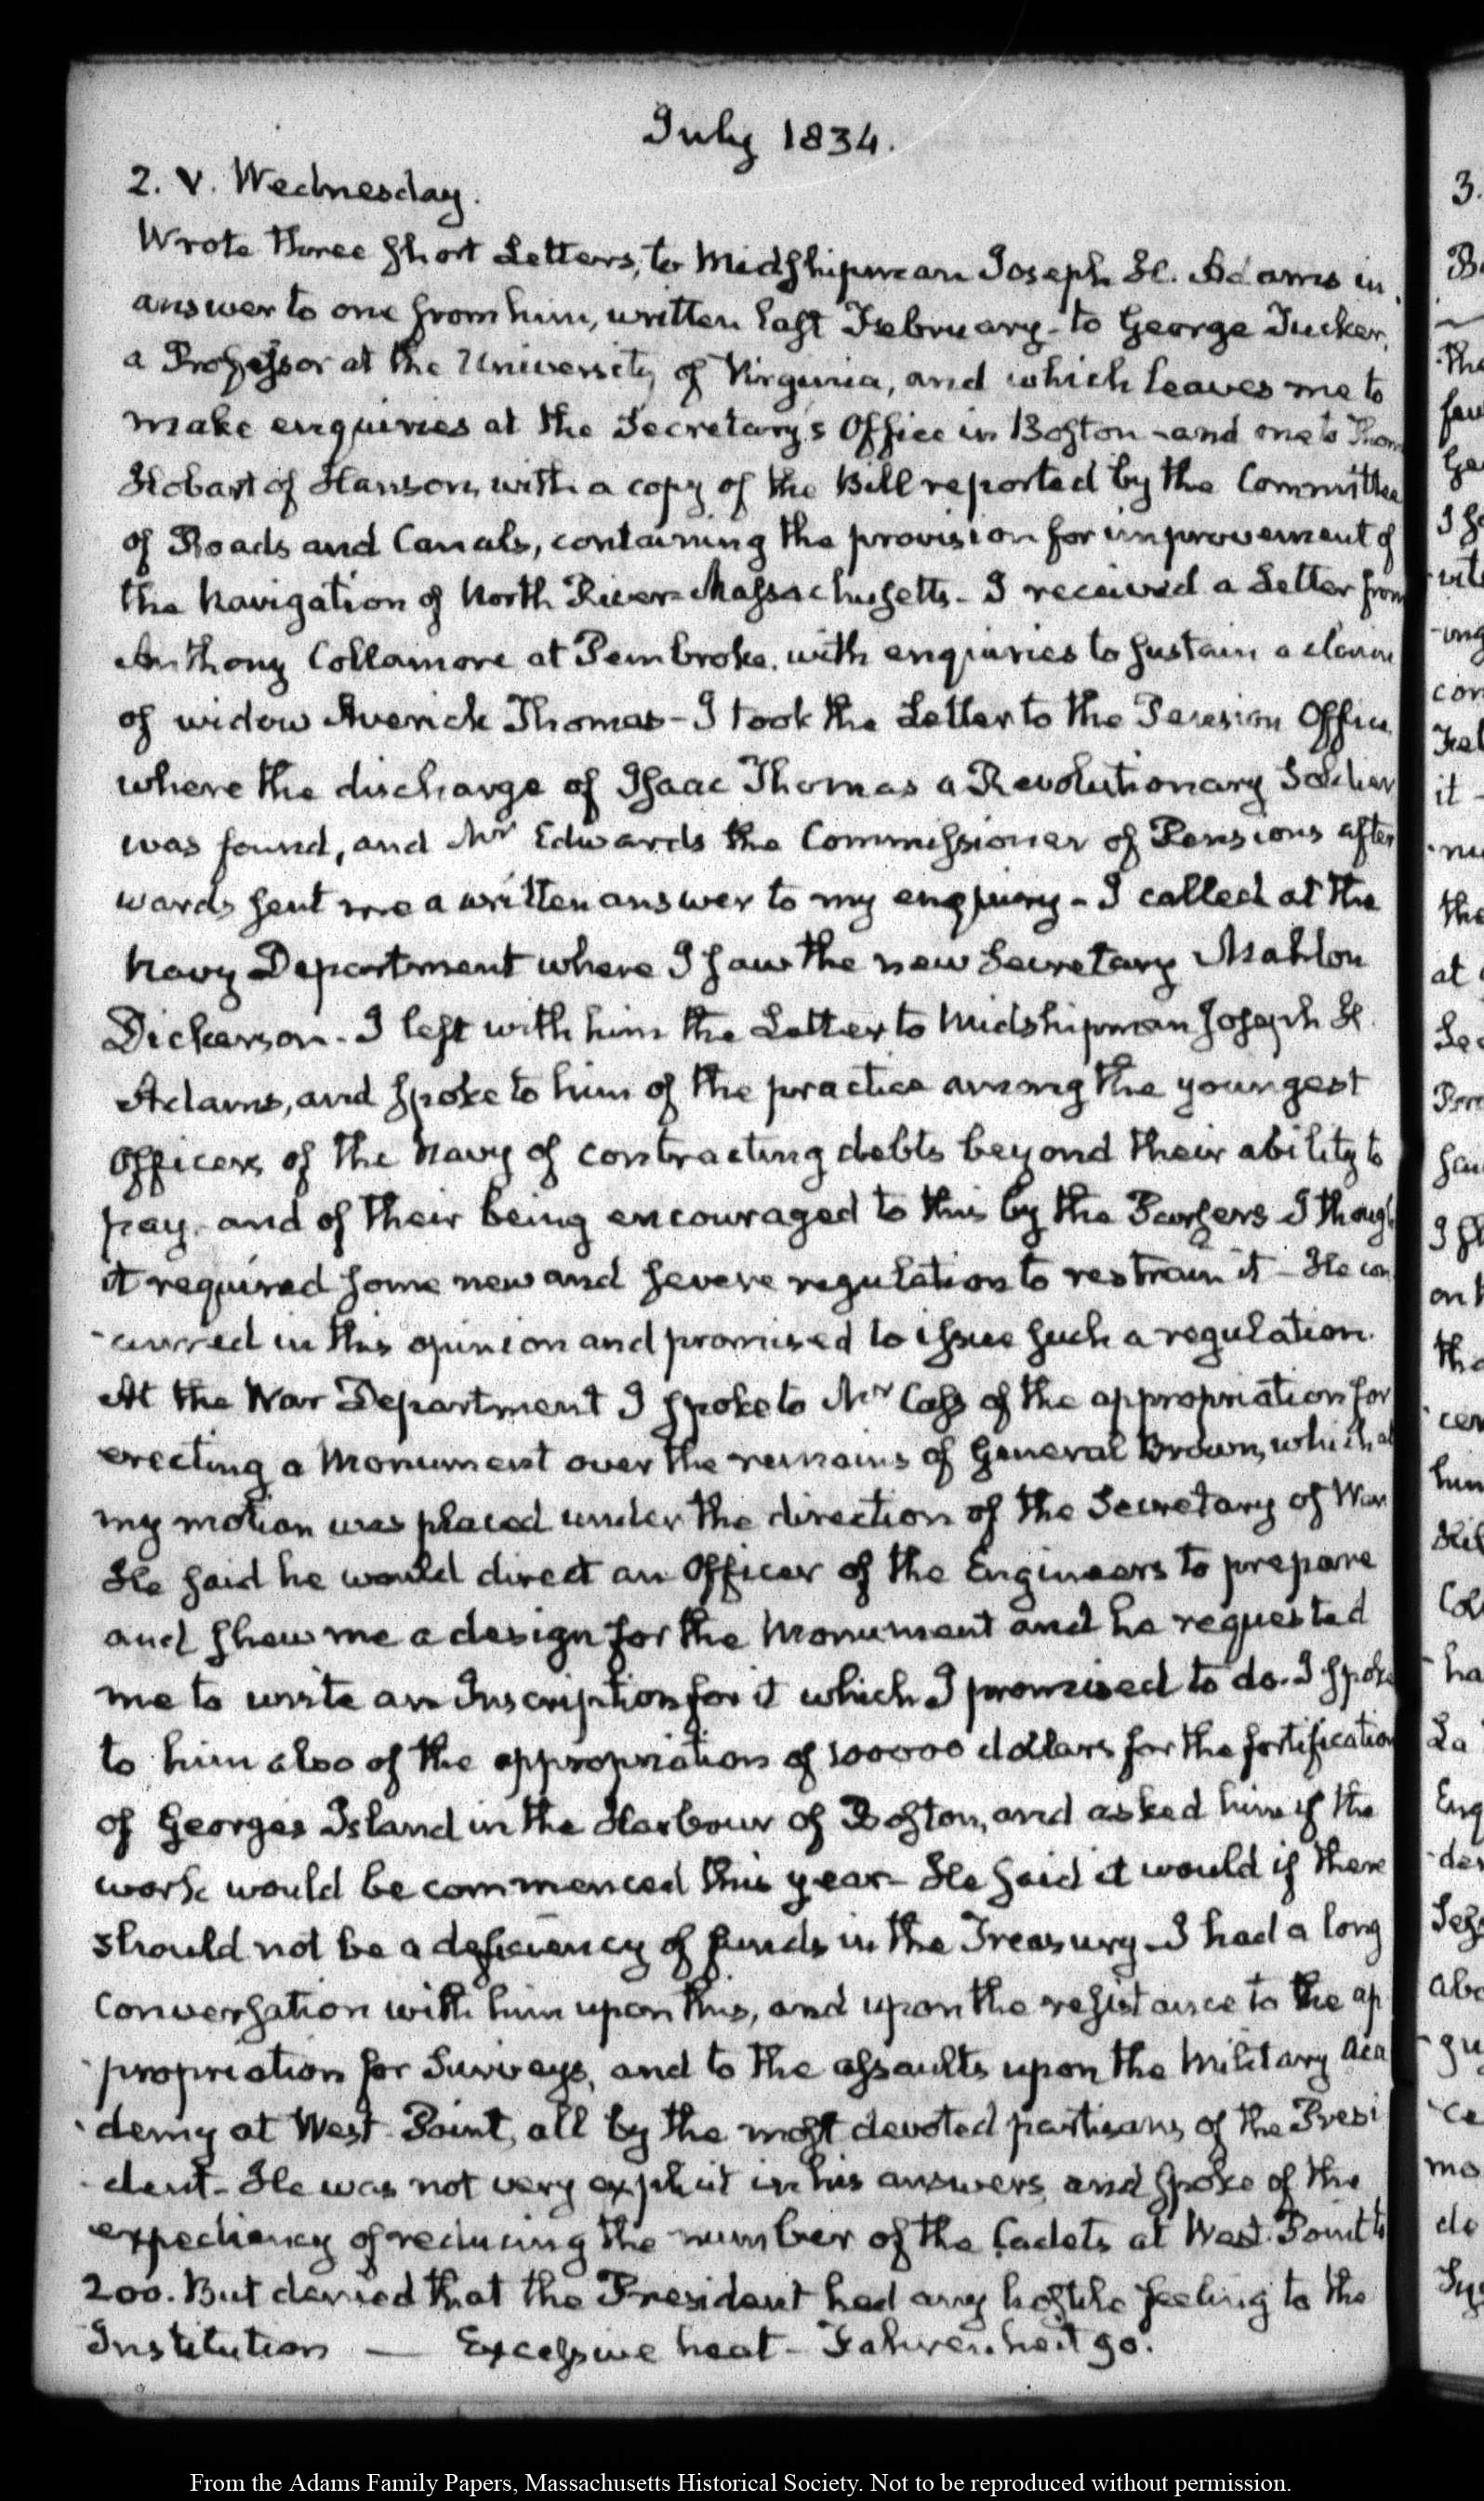 July 1834.
2. V. Wednesday.
Wrote three short Letters; to Midshipman Joseph H. Adams in
answer to one from him, written last February - to George Tucker,
a Professor at the University of Virginia, and which leaves me to
make enquiries at the Secretary's Office in Boston - and one to Thom
Hobart of Hanson, with a copy of the Bill reported by the Committee
of Roads and Canals, containing the provision for improvement of
the Navigation of North River Massachusetts - I received a Letter from
Anthony Collamore at Pembroke, with enquiries to sustain a claim
of widow Averick Thomas - I took the Letter to the Pension Office
where the discharge of Isaac Thomas a Revolutionary Soldier
was found, and Mr Edwards the Commissioner of Pensions after
wards sent me a written answer to my enquiry - I called at the
Navy Department where I saw the new Secretary Mahlon
Dickerson - I left with him the Letter to Midshipman Joseph H.
Adams, and spoke to him of the practice among the youngest
Officers of the Navy of contracting debts beyond their ability to
pay, and of their being encouraged to this by the Pursers - I though
it required some new and severe regulation to restrain it - He con
-curred in this opinion and promised to issue such a regulation.
At the War Department I spoke to Mr Cass of the appropriation for
erecting a Monument over the remains of General Brown, which at
my motion was placed under the direction of the Secretary of War
He said he would direct an Officer of the Engineers to prepare
and shew me a design for the Monument and he requested
me to write an Inscription for it which I promised to do. I spoke
to him also of the appropriation of 100000 dollars for the fortification
of Georges Island in the Harbour of Boston, and asked him if the
work would be commenced this year - He said it would if there
should not be a deficiency of funds in the Treasury - I had a long
Conversation with him upon this, and upon the resistance to the ap
-propriation for Surveys, and to the assaults upon the Military Aca
-demy at West-Point, all by the most devoted partisans of the Presi
-dent - He was not very explicit in his answers, and spoke of the
expediency of reducing the number of the Cadets at West-Point to
200. But denied that the President had any hostile feeling to the
Institution — Excessive heat - Fahrenheit 90.
From the Adams Family Papers, Massachusetts Historical Society. Not to be reproduced without permission.